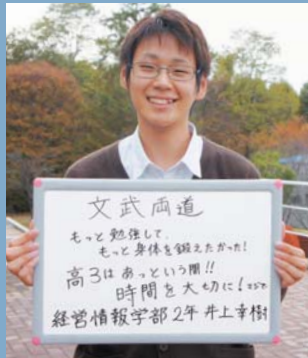 文武両道
もっと勉強して、
もっと身体を鍛えたかった!
高3はあっという間!!
時間を大切に!マジで
経営情報学部2年 井上幸樹